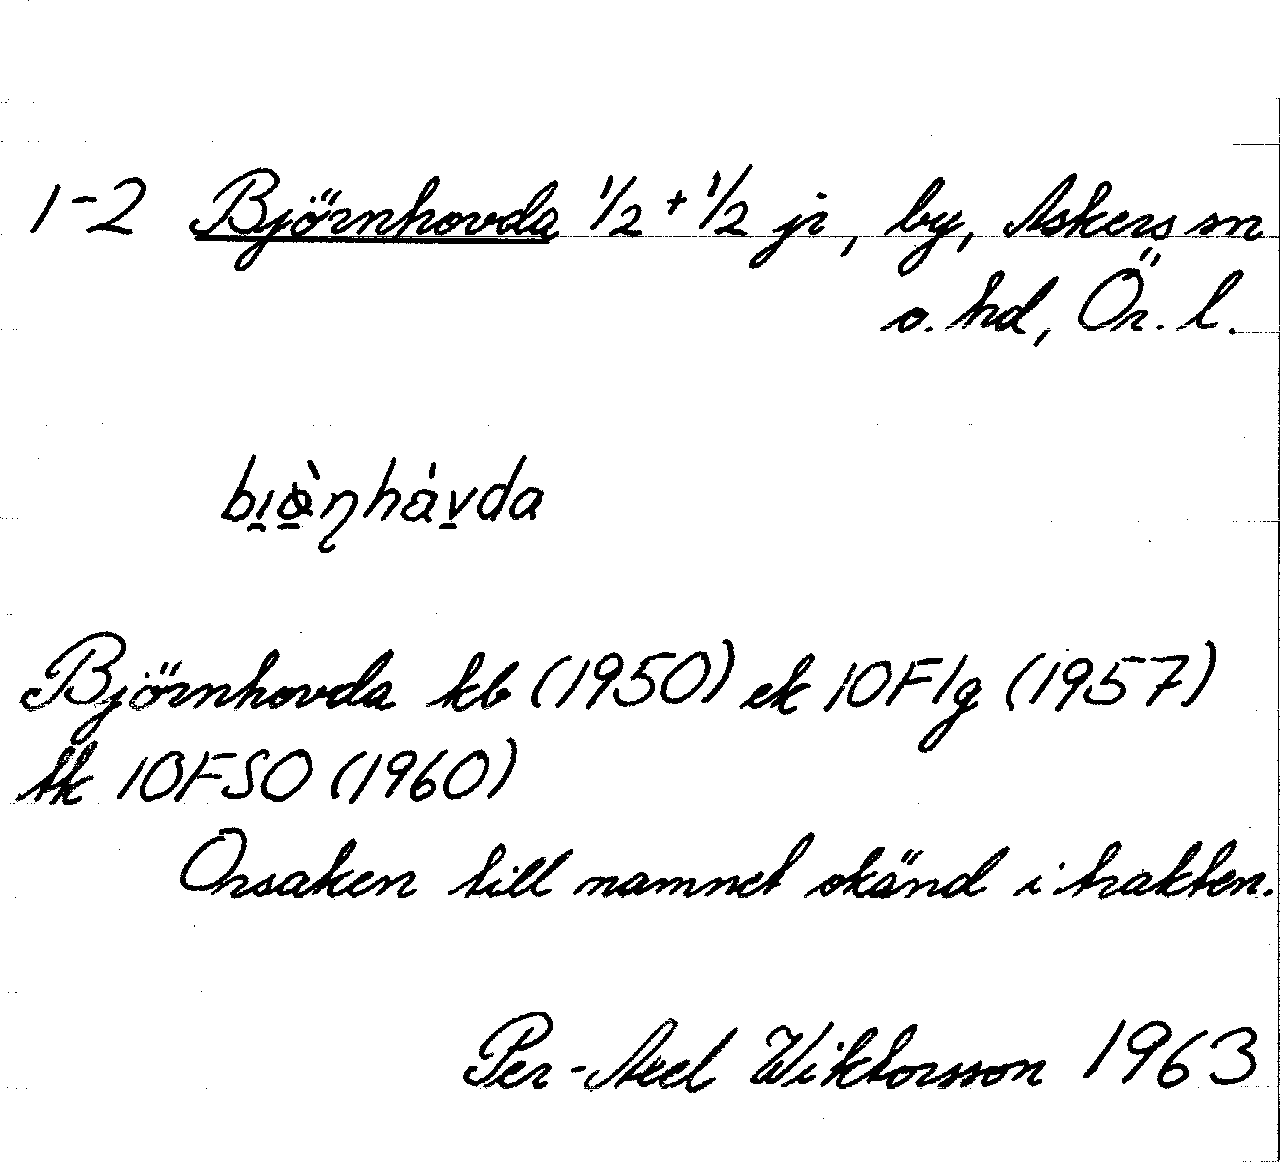 1-2 Björnhovda 1/2 + 1/2 jr, by, Askers sn
o. hd, Ör. l.
bi̯ö̀ṇhávda
Björnhovda kb (1950) ek 10F1g (1957)
tk 10FSO (1960)
Orsaken till namnet okänd i trakten.
Per-Axel Wiktorsson 1963